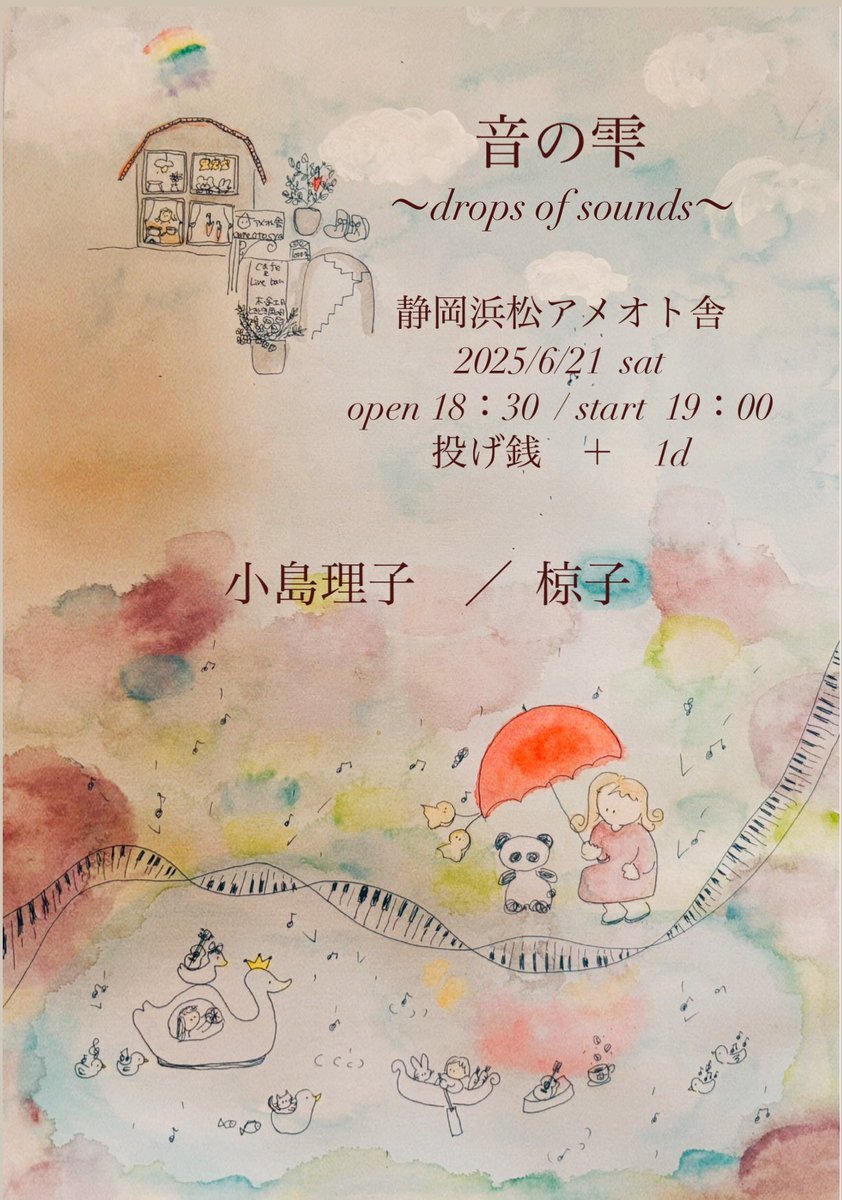 音の雫
〜drops of sounds〜
静岡浜松アメオト舎
2025/6/21 sat
open 18：30 / start 19：00
投げ銭　＋　1d
小島理子　／ 椋子
アメオト舎
Cafe
&